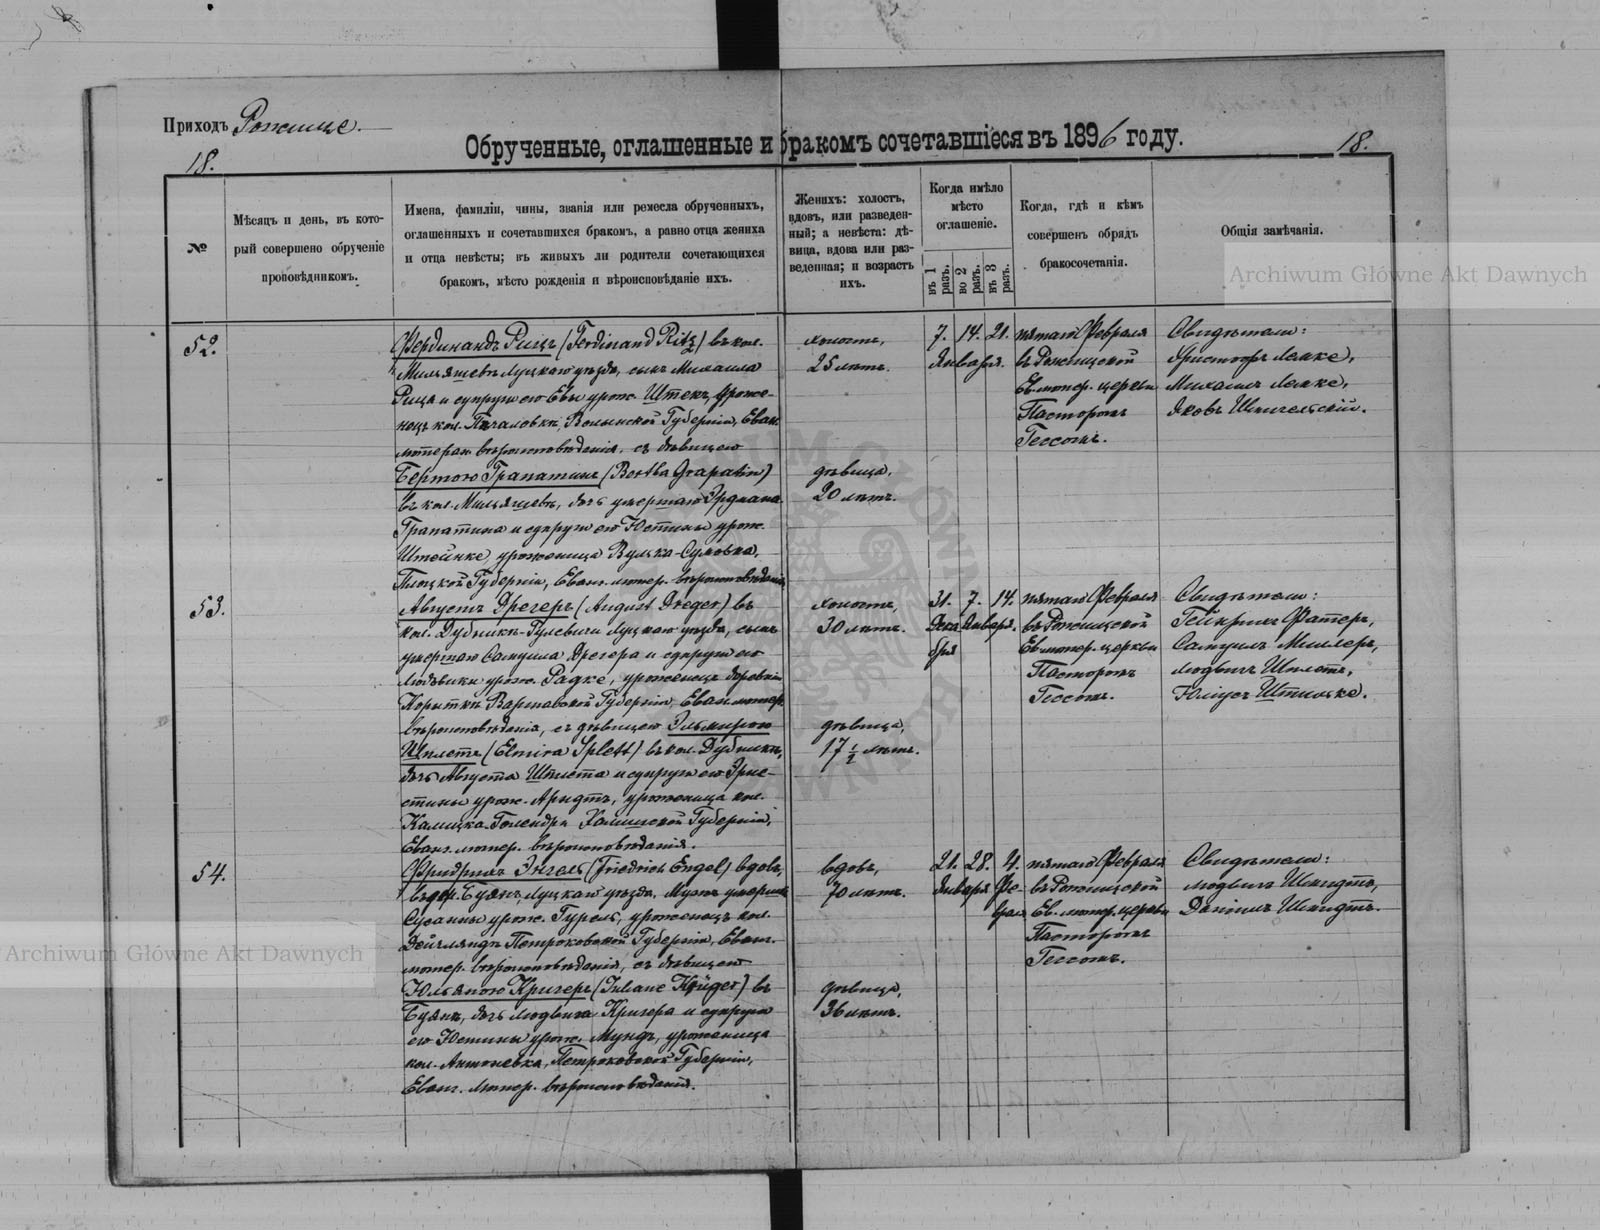 Приходъ Рожище.
Обрученные, оглашенные и бракомъ сочетавшіеся въ 1896 году.
18.
18.
№
Мѣсяцъ и день, въ кото-
рый совершено обрученіе
проповѣдникомъ.
Имена, фамиліи, чины, званія или ремесла обрученныхъ,
оглашенныхъ и сочетавшихся бракомъ, а равно отца жениха
и отца невѣсты; въ живыхъ ли родители сочетающихся
бракомъ, мѣсто рожденія и вѣроисповѣданіе ихъ.
Женихъ: холостъ,
вдовъ, или разведен-
ный; а невѣста: дѣ-
вица, вдова или раз-
веденная; и возрастъ
ихъ.
Когда имѣло
мѣсто
оглашеніе.
въ 1 разъ.
во 2 разъ.
въ 3 разъ.
Когда, гдѣ и кѣмъ
совершенъ обрядъ
бракосочетанія.
Общія замѣчанія.
Archiwum Główne Akt Dawnych
52.
Фердинандъ Рицъ (Ferdinand Ritz) въ кол.
Мильяшевъ Луцкаго уѣзда, сынъ Михаила
Рица и супруги его Евы урож. Штекъ, уроже-
нецъ кол. Волынской Губерніи, Еван.
лютеран. вѣроисповѣданія, съ дѣвицею
Бертою Грапатинъ (Bertha Grapatin)
въ кол. Мильяшевъ, дочь умершаго Эрдмана
Грапатина и супруги его Юстины урож.
Штейнке, уроженица Вулька-
Плоцкой Губерніи, Еванг. лютер. вѣроисповѣданія
холостъ,
25 лѣтъ.
дѣвица,
20 лѣтъ.
7. 14. 21.
Января.
пятаго Февраля
въ Рожищской
Ев. лютер. церкви
Пасторомъ
Гессомъ.
Свидѣтели:
Христофъ Лемке,
Михаилъ Лемке,
Яковъ Шпигельскій.
53.
Августъ Дрегеръ (August Dreger) въ
кол. Дубники-Гулевичи Луцкаго уѣзда, сынъ
умершаго Самуила Дрегера и супруги его
Людвики урож. Радке, уроженецъ деревни
Корытки Варшавской Губерніи, Еван. лютер.
вѣроисповѣданія, съ дѣвицею Эльмирою
Шплетъ (Elmira Splett) въ кол. Дубники,
дочь Августа Шплета и супруги его Эрне-
стины урож. Арндтъ, уроженица кол.
Губерніи,
Еванг. лютер. вѣроисповѣданія.
холостъ,
30 лѣтъ.
дѣвица,
17 1/2 лѣтъ.
31. 7. 14.
Дека Января.
бря
пятаго Февраля
въ Рожищской
Ев. лютер. церкви
Пасторомъ
Гессомъ.
Свидѣтели:
Гейнрихъ Фатеръ,
Самуилъ Миллеръ,
Людвигъ Шплетъ,
Юліусъ Штильке.
54.
Фридрихъ Энгель (Friedrich Engel) вдовъ,
въ дер. Буянъ, Луцкаго уѣзда, Мужъ умершей
Сусанны урож. Гурель, уроженецъ кол.
Дейчляндъ Петроковской Губерніи, Еванг.
лютер. вѣроисповѣданія, съ дѣвицею
Юльяною Кригеръ (Juliane Krüger) въ
Буянъ, дочь Людвига Кригера и супруги
его Юстины урож. Мундъ, уроженица
кол. Антоневка, Петроковской Губерніи,
Еванг. Лютер. вѣроисповѣданія.
вдовъ,
70 лѣтъ.
дѣвица,
36 лѣтъ.
21. 28. 4.
Января Фе-
враля
пятаго Февраля
въ Рожищской
Ев. лютер. церкви
Пасторомъ
Гессомъ.
Свидѣтели:
Людвигъ Шмидтъ,
Даніилъ Шмидтъ.
Archiwum Główne Akt Dawnych